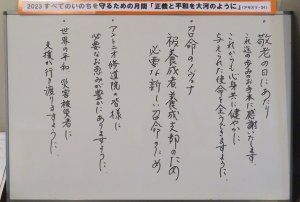 2023 すべてのいのちを守るための月間「正義と平和を大河のように」(アモス5・24)
敬老の日にあたり
これ迄の歩みの年月に感謝いたします。
これからも心身共に健やかに
与えられた使命を全うできますように。
召命のノヴェナ
被養成者、養成支部のため
必要な新しい召命のため
アントニオ修道院の皆様に
必要なお恵みが豊かにありますように。
世界の平和 災害被災者に
支援が行き渡りますように。